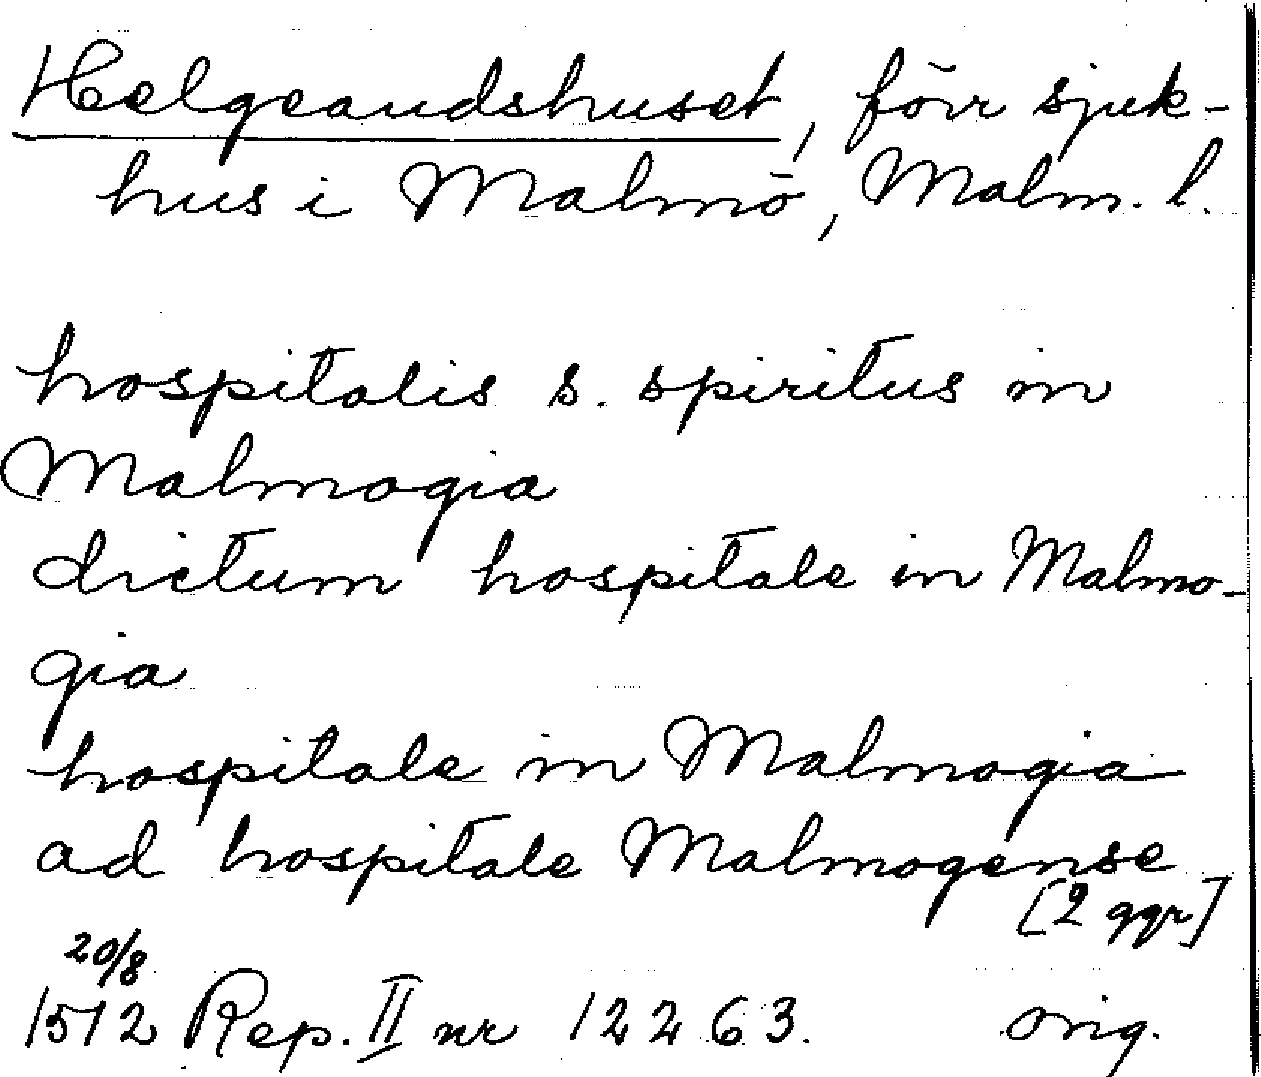 Helgeandshuset, förr sjuk-
hus i Malmö, Malm. l.
hospitalis s. spiritus in
Malmogia
dictum hospitale in Malmo-
gia
hospitale in Malmogia
ad hospitale Malmogense
[2 ggr]
20/8
1512 Rep. II nr 12263. orig.